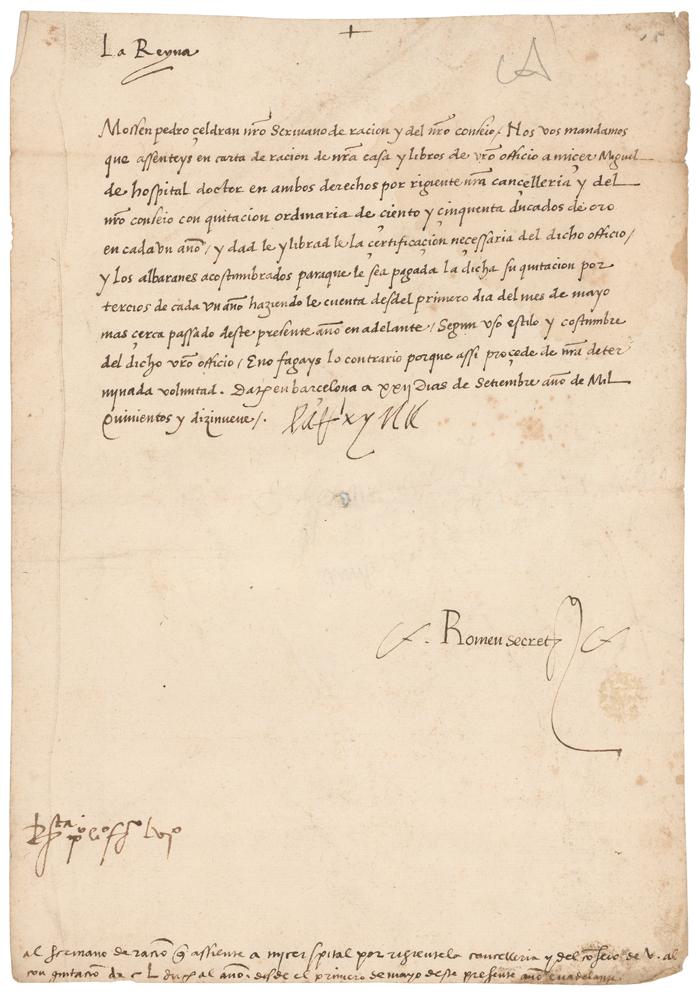 La Reyna
Mossen pedro çeldran nro Scrivano de racion y del nro conseio / Nos vos mandamos
que assenteys en carta de racion de nra casa y libros de vro officio a miçer Miguel
de hospital doctor en ambos derechos por rigiente nra cançelleria y del
nro conseio con quitacion ordinaria de ciento y cinquenta ducados de oro
en cada un año / y dad le y librad le la çertificaçion neçessaria del dicho officio /
y los albaranes acostumbrados paraque le sea pagada la dicha su quitacion por
terçios de cada un año haziendo le cuenta desdel primero dia del mes de mayo
mas çerca passado deste presente año en adelante / Segun uso estilo y costumbre
del dicho vro officio / E no fagays lo contrario porque assi proçede de nra deter
minada voluntad. Dat en barcelona a xxij dias de Setiembre año de Mil
Quinientos y dizinueve /.
Romeu secret
al scrivano de racio q assiente a miçer spital por rigente la cancelleria y del conseio de v. al
con quitacio de c L duc al año. desde el primero de mayo deste presente año en adelante.